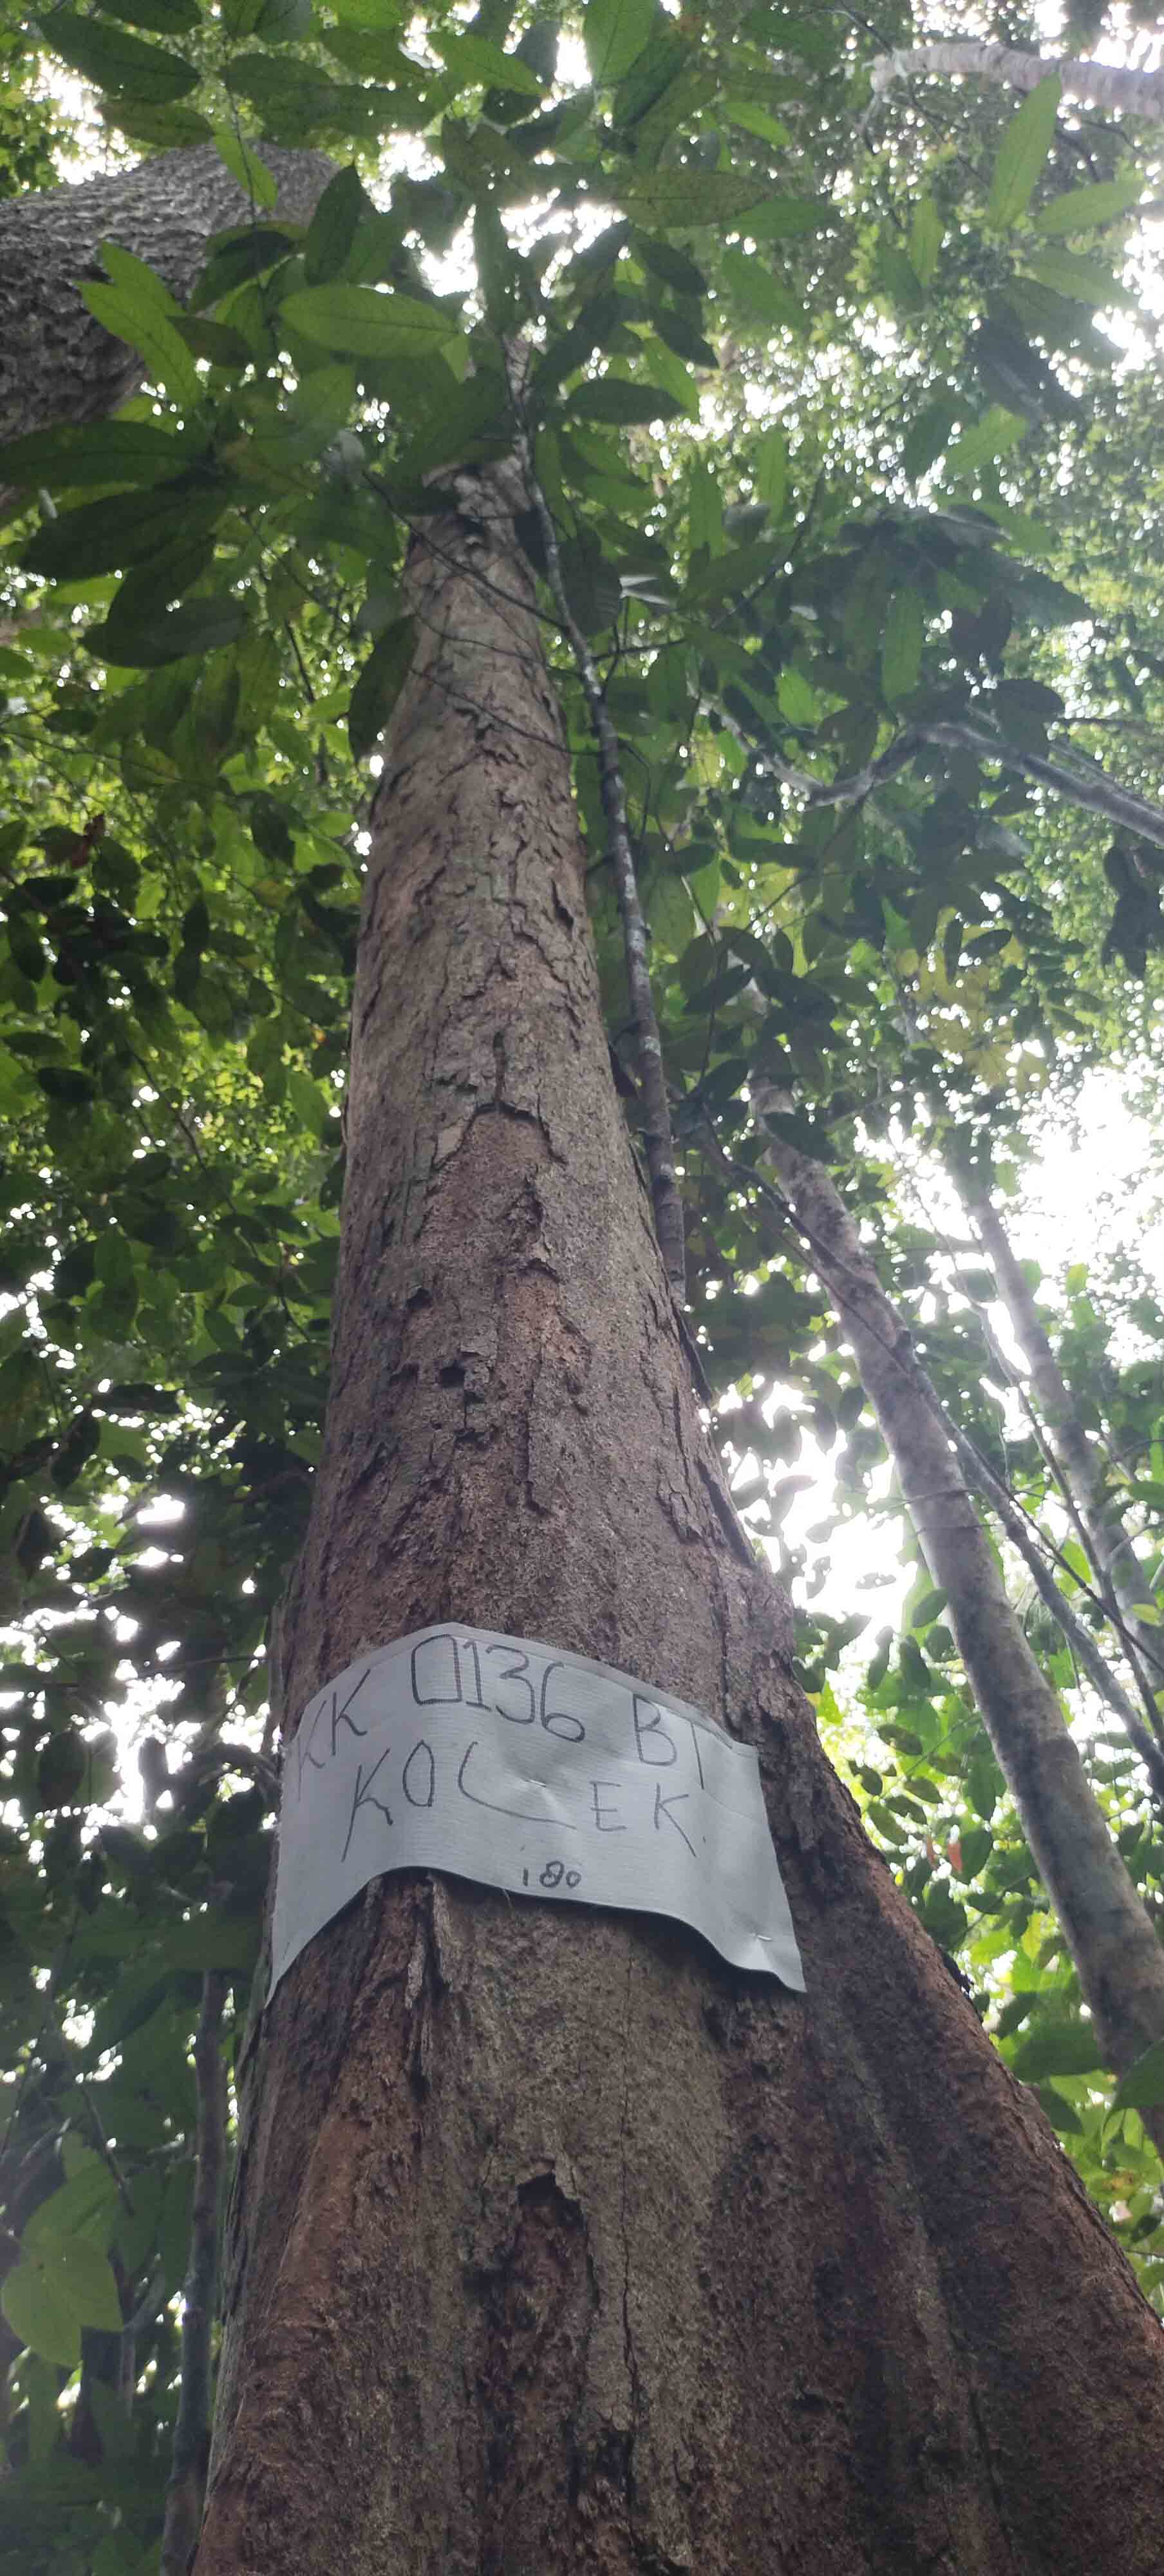 KK 0136 BT
KOLEK.
180